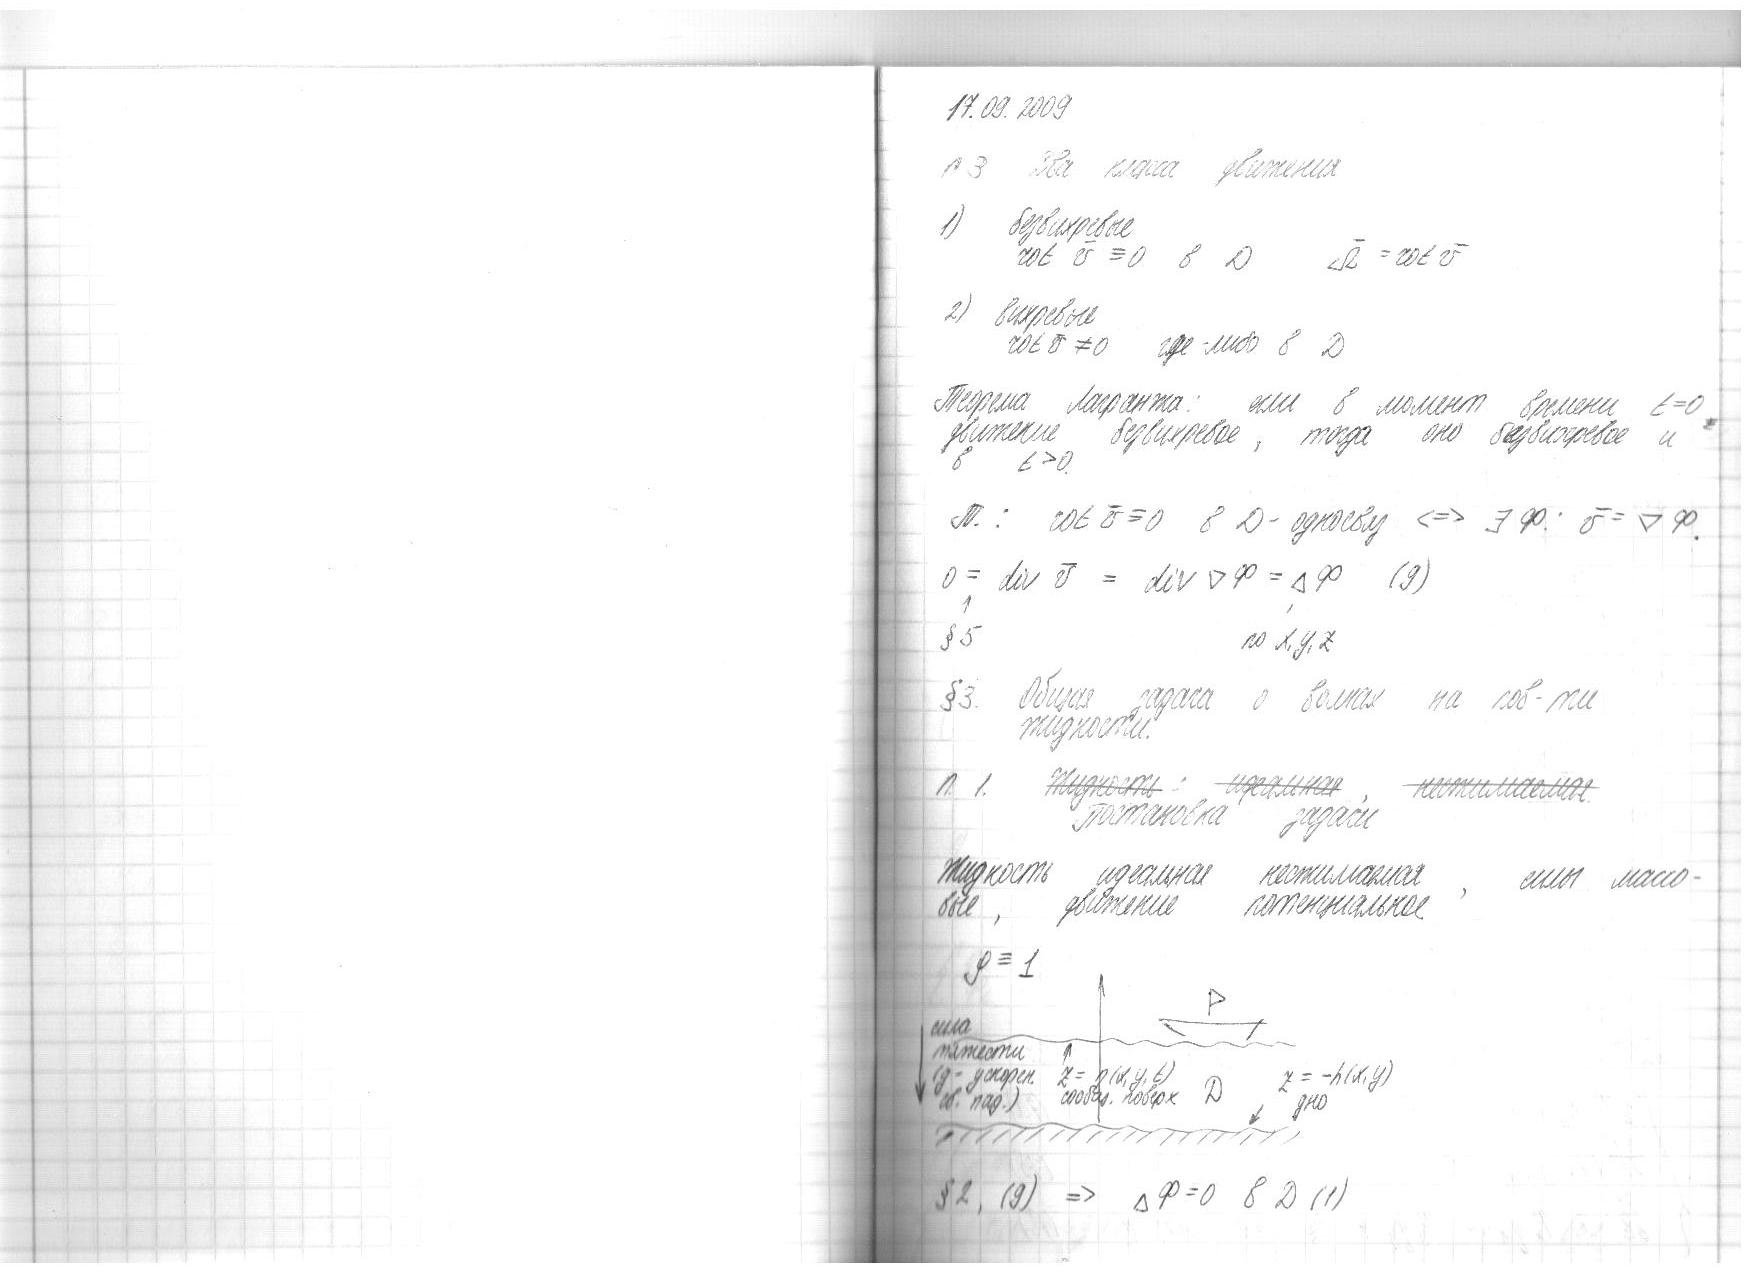 17.09.2009
п 3 Два класса движения
1) безвихревые
rot v̄ ≡ 0 в D Ω̄ = rot v̄
2) вихревые
rot v̄ ≠ 0 где-либо в D
Теорема Лагранжа: если в момент времени t=0
движение безвихревое, тогда оно безвихревое и
в t>0.
Т.: rot v̄ ≡ 0 в D - односвяз <=> ∃ Φ: v̄ = ∇Φ.
0 = div v̄ = div ∇Φ = ΔΦ (9)
§5 по x,y,z
§3. Общая задача о волнах на пов-ти
жидкости.
п. 1. Жидкость: идеальная, несжимаемая.
Постановка задачи
Жидкость идеальная несжимаемая, силы массо-
вые, движение потенциальное.
ρ ≡ 1
P
сила
тяжести
(g - ускорен. z = η(x,y,t) z = -h(x,y)
св. пад.) свобод. поверх D дно
§2, (9) => ΔΦ = 0 в D (1)